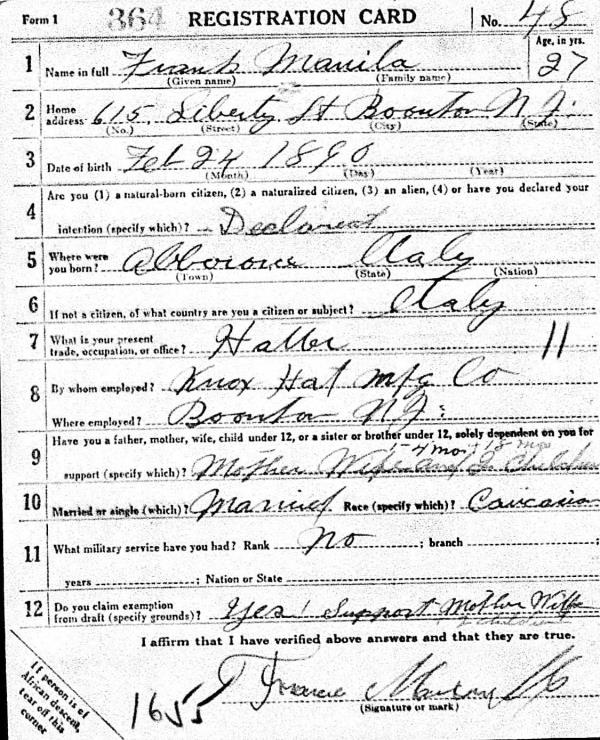 Form 1 364 REGISTRATION CARD No. 48
1 Name in full Frank Manila Age, in yrs. 27
(Given name) (Family name)
2 Home address 615 Liberty St Boonton N.J.
(No.) (Street) (City) (State)
3 Date of birth Feb 24 1890
(Month) (Day) (Year)
Are you (1) a natural-born citizen, (2) a naturalized citizen, (3) an alien, (4) or have you declared your
4 intention (specify which)? Declarent
5 Where were you born? Italy
(Town) (State) (Nation)
6 If not a citizen, of what country are you a citizen or subject? Italy
7 What is your present trade, occupation, or office? Hatter 11
8 By whom employed? Knox Hat Mfg Co
Where employed? Boonton N.J.
9 Have you a father, mother, wife, child under 12, or a sister or brother under 12, solely dependent on you for
1-4 mo. 1 18 mos
support (specify which)? Mother Wife and 2 Children
10 Married or single (which)? Married Race (specify which)? Caucasian
11 What military service have you had? Rank No ; branch ;
years ; Nation or State
12 Do you claim exemption from draft (specify grounds)? Yes! Support Mother Wife
2 children
I affirm that I have verified above answers and that they are true.
If person is of
African descent,
tear off this
corner
1655
(Signature or mark)